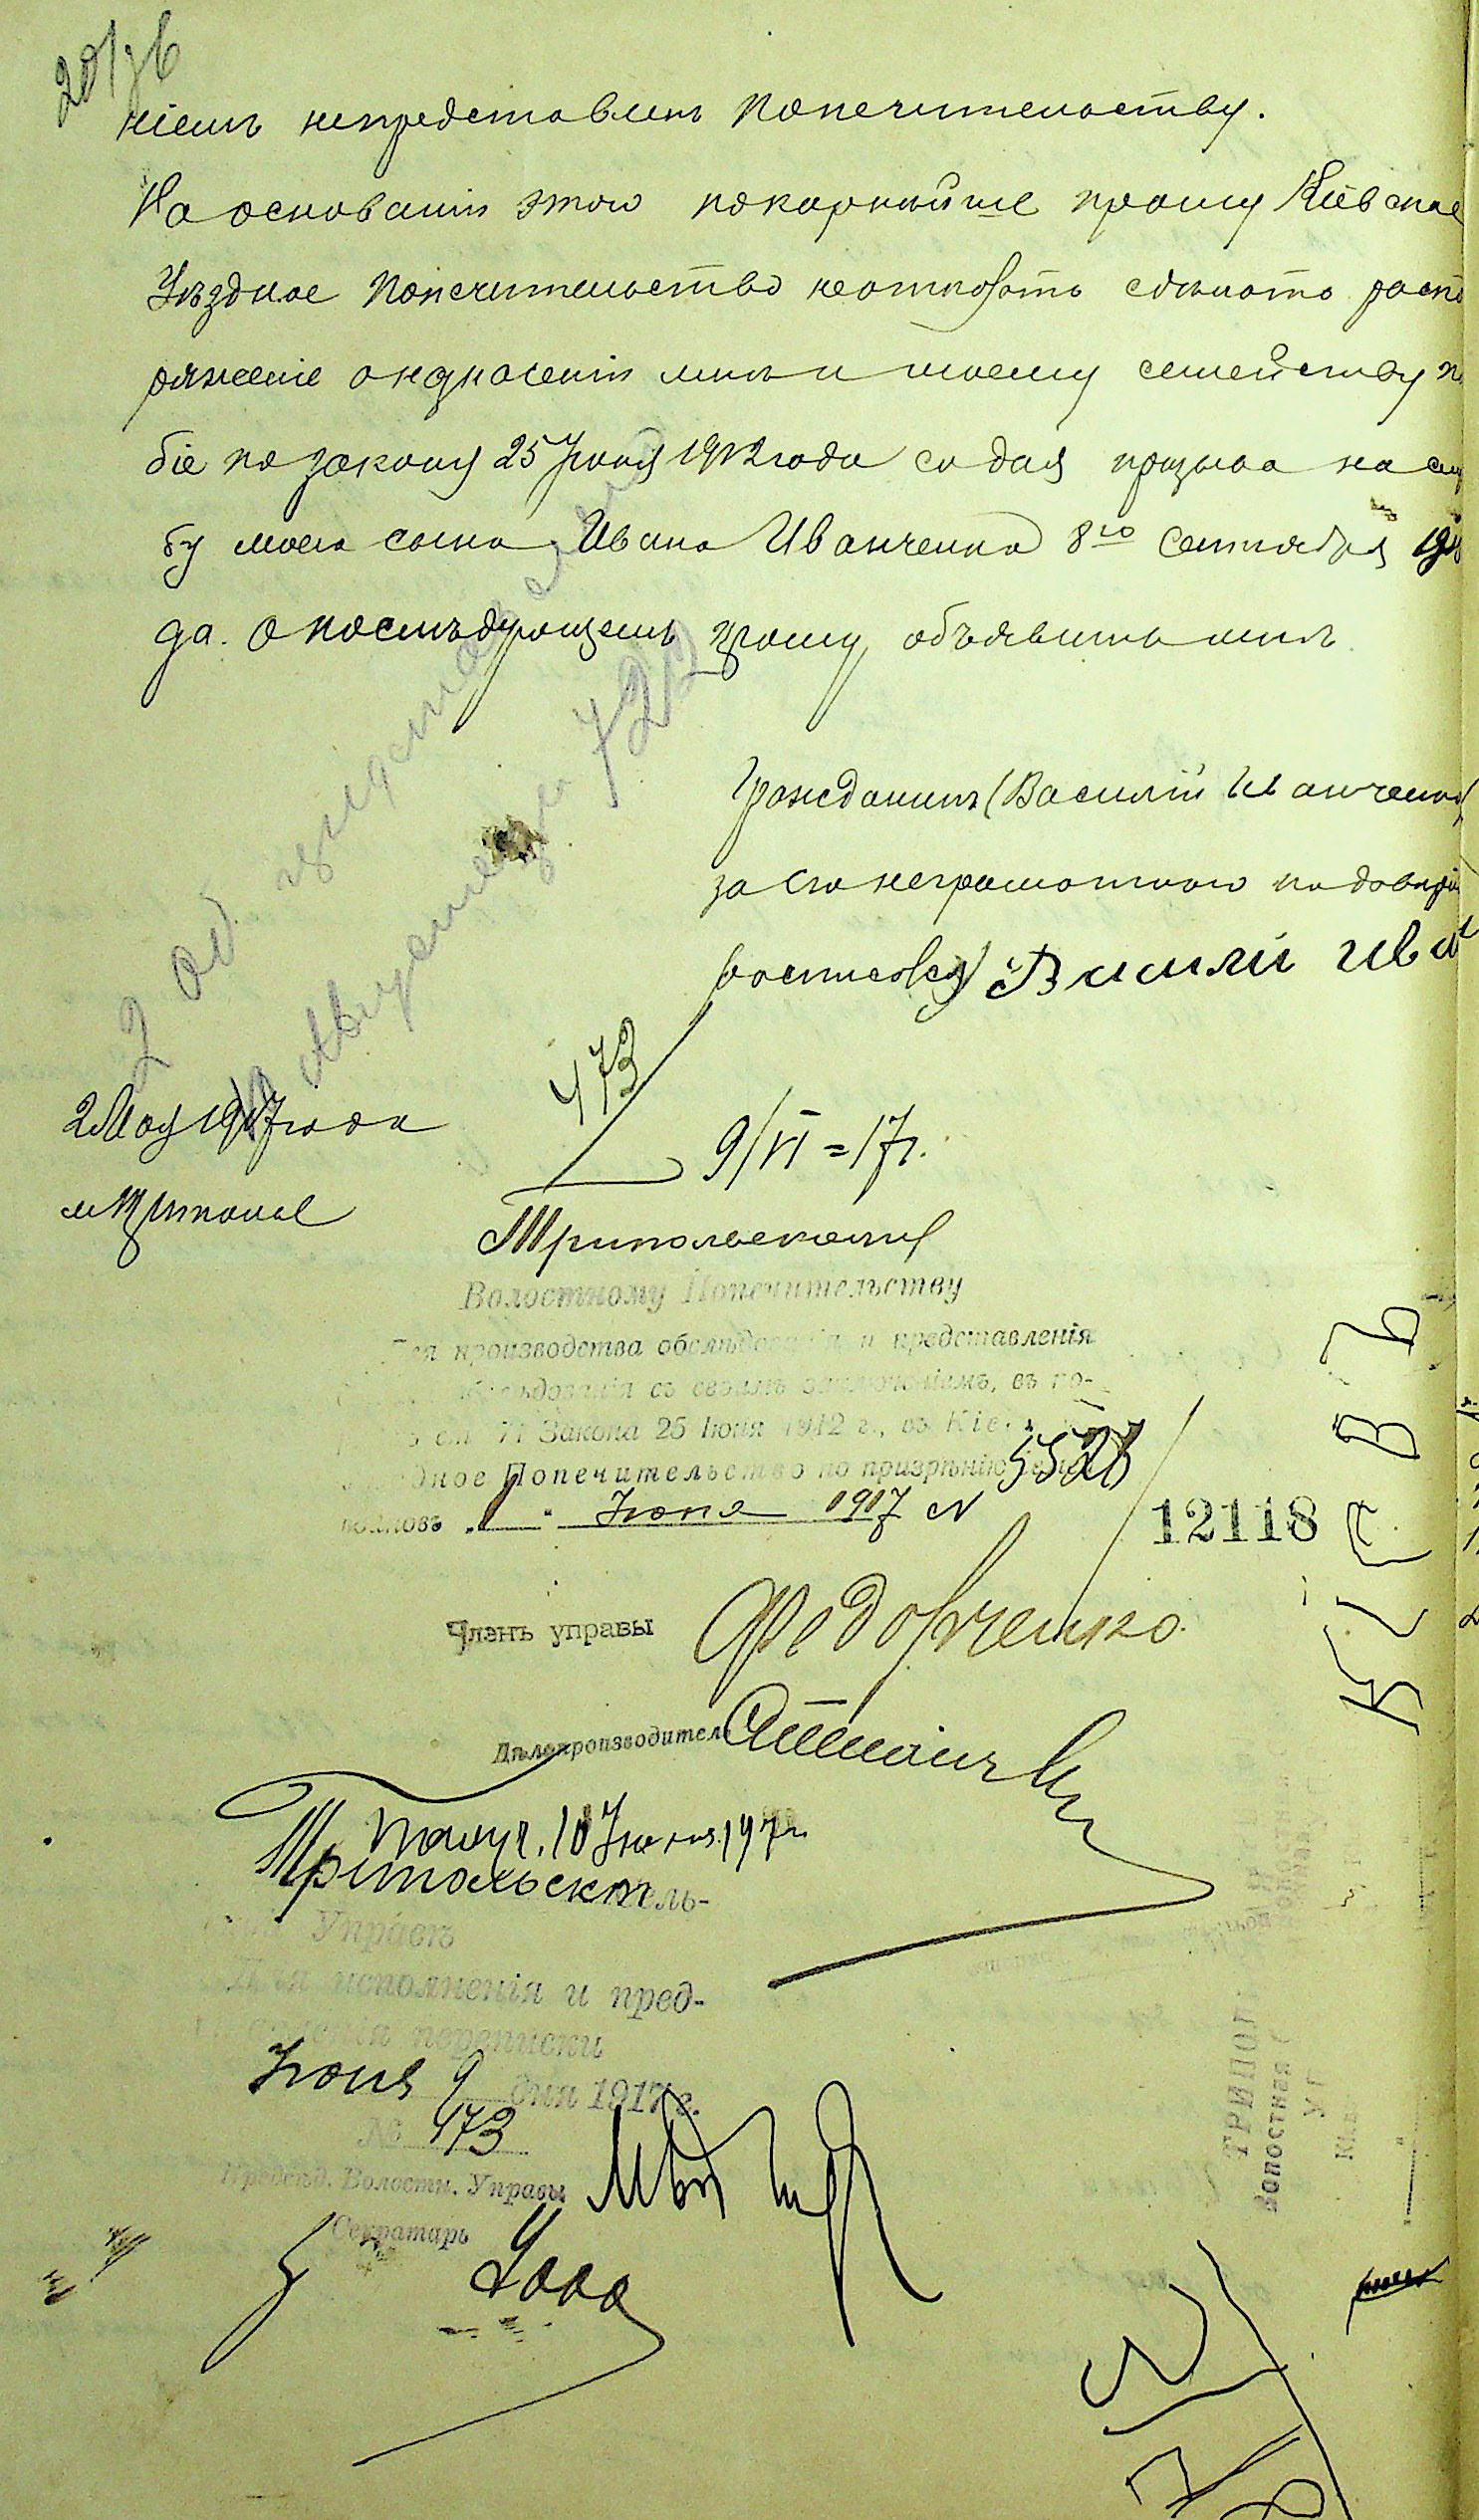 ніемъ непредставленъ Попечительству.
На основаніи этого покорнѣйше прошу Кіевское
Уѣздное Попечительство неотказать сдѣлать распо
ряженіе оназначеніи мнѣ и моему семейству по
біе по закону 25 Іюня 1912 года со дня призыва на слу
бу моего сына Ивана Иванченко 8го Сентября
да. О послѣдующемъ прошу объявить мнѣ.
Гражданинъ (Василій Иванченко)
за его неграмотного по довѣрію
росписовся) Василій Ива
473
9/VI = 17 г.
2 Мая 1917 года
м Триполье
Трипольскому
Волостному Попечительству
Для производства обслѣдованія и представленія
обслѣдованія съ своимъ заключеніемъ, въ по-
ст. 71 Закона 25 Іюня 1912 г., въ Кіев
дное Попечительство по призрѣнію
воиновъ „1“ Іюня 1917 N 5528
12118
КІЕВЪ
Членъ управы Федовченко
Дѣлопроизводитель
Получ. 10 Іюня 1917 г.
Трипольск сель-
Управѣ
Для исполненія и пред-
ставленія переписки
Іюня 9 дня 1917 г.
№ 473
Предсѣд. Волостн. Управы
Секретарь
ТРИПОЛ
Волостная